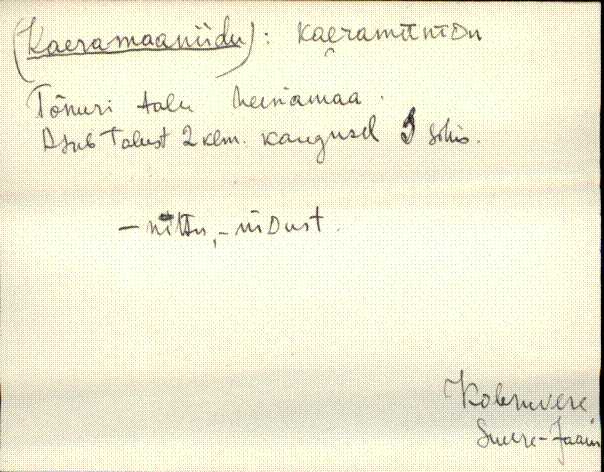 (Kaeramaaniidu): kaeramɪ̄nɪᴅu
Tõnuri talu heinamaa.
Asub talust 2 klm. kaugusel S sihis.
– nīttu, – niᴅust.
Kolmvere
Suure-Jaani